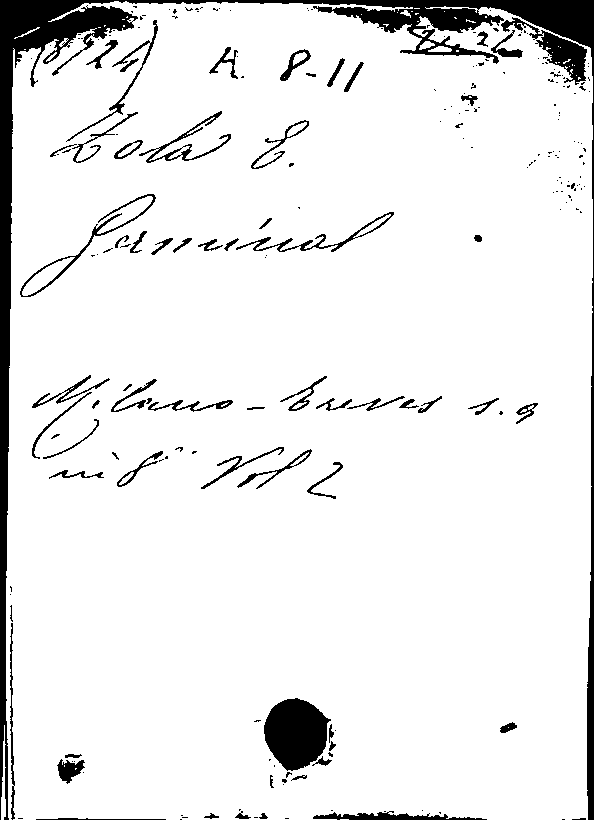 (8724) A 8-11
Zola E.
Germinal
Milano - Treves s. a
in 8° Vol 2